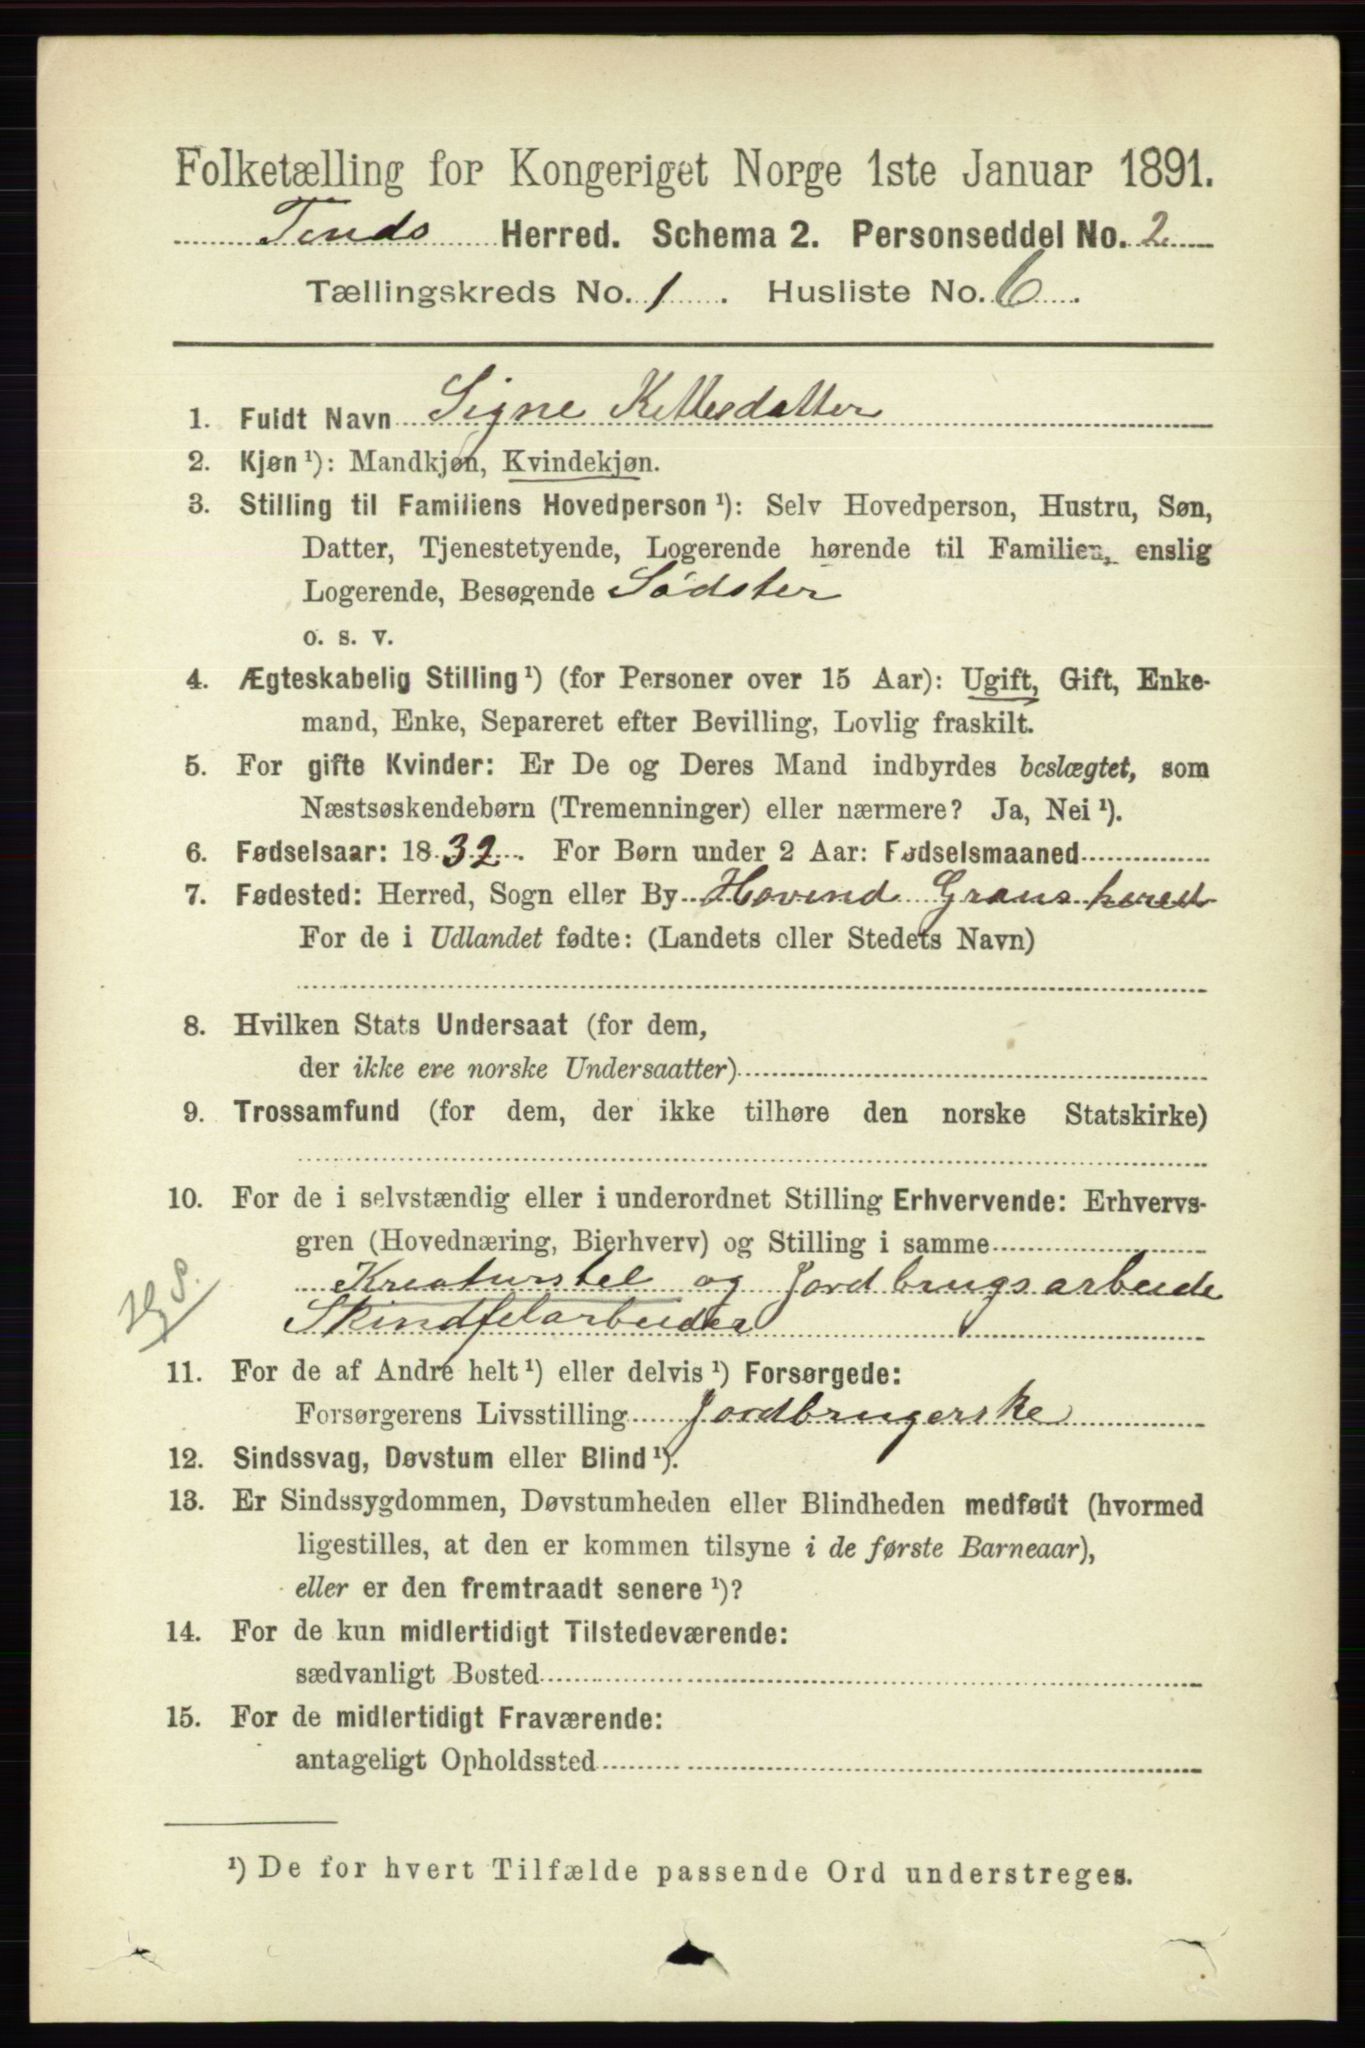 Folketælling for Kongeriget Norge 1ste Januar 1891.
Tinds Herred. Schema 2. Personseddel No. 2
Tællingskreds No. 1. Husliste No. 6.
1. Fuldt Navn Signe Kittesdatter
2. Kjøn ¹): Mandkjøn, Kvindekjøn.
3. Stilling til Familiens Hovedperson ¹): Selv Hovedperson, Hustru, Søn,
Datter, Tjenestetyende, Logerende hørende til Familien, enslig
Logerende, Besøgende Södster
o. s. v.
4. Ægteskabelig Stilling ¹) (for Personer over 15 Aar): Ugift, Gift, Enke-
mand, Enke, Separeret efter Bevilling, Lovlig fraskilt.
5. For gifte Kvinder: Er De og Deres Mand indbyrdes beslægtet, som
Næstsøskendebørn (Tremenninger) eller nærmere? Ja, Nei ¹).
6. Fødselsaar: 1832. For Børn under 2 Aar: Fødselsmaaned
7. Fødested: Herred, Sogn eller By Hovind Grans hered
For de i Udlandet fødte: (Landets eller Stedets Navn)
8. Hvilken Stats Undersaat (for dem,
der ikke ere norske Undersaatter)
9. Trossamfund (for dem, der ikke tilhøre den norske Statskirke)
10. For de i selvstændig eller i underordnet Stilling Erhvervende: Erhvervs-
gren (Hovednæring, Bierhverv) og Stilling i samme
Kreaturstel og Jordbrugsarbeide
Skindfelarbeider
11. For de af Andre helt ¹) eller delvis ¹) Forsørgede:
Forsørgerens Livsstilling Jordbrugerske
12. Sindssvag, Døvstum eller Blind ¹).
13. Er Sindssygdommen, Døvstumheden eller Blindheden medfødt (hvormed
ligestilles, at den er kommen tilsyne i de første Barneaar),
eller er den fremtraadt senere ¹)?
14. For de kun midlertidigt Tilstedeværende:
sædvanligt Bosted
15. For de midlertidigt Fraværende:
antageligt Opholdssted
¹) De for hvert Tilfælde passende Ord understreges.